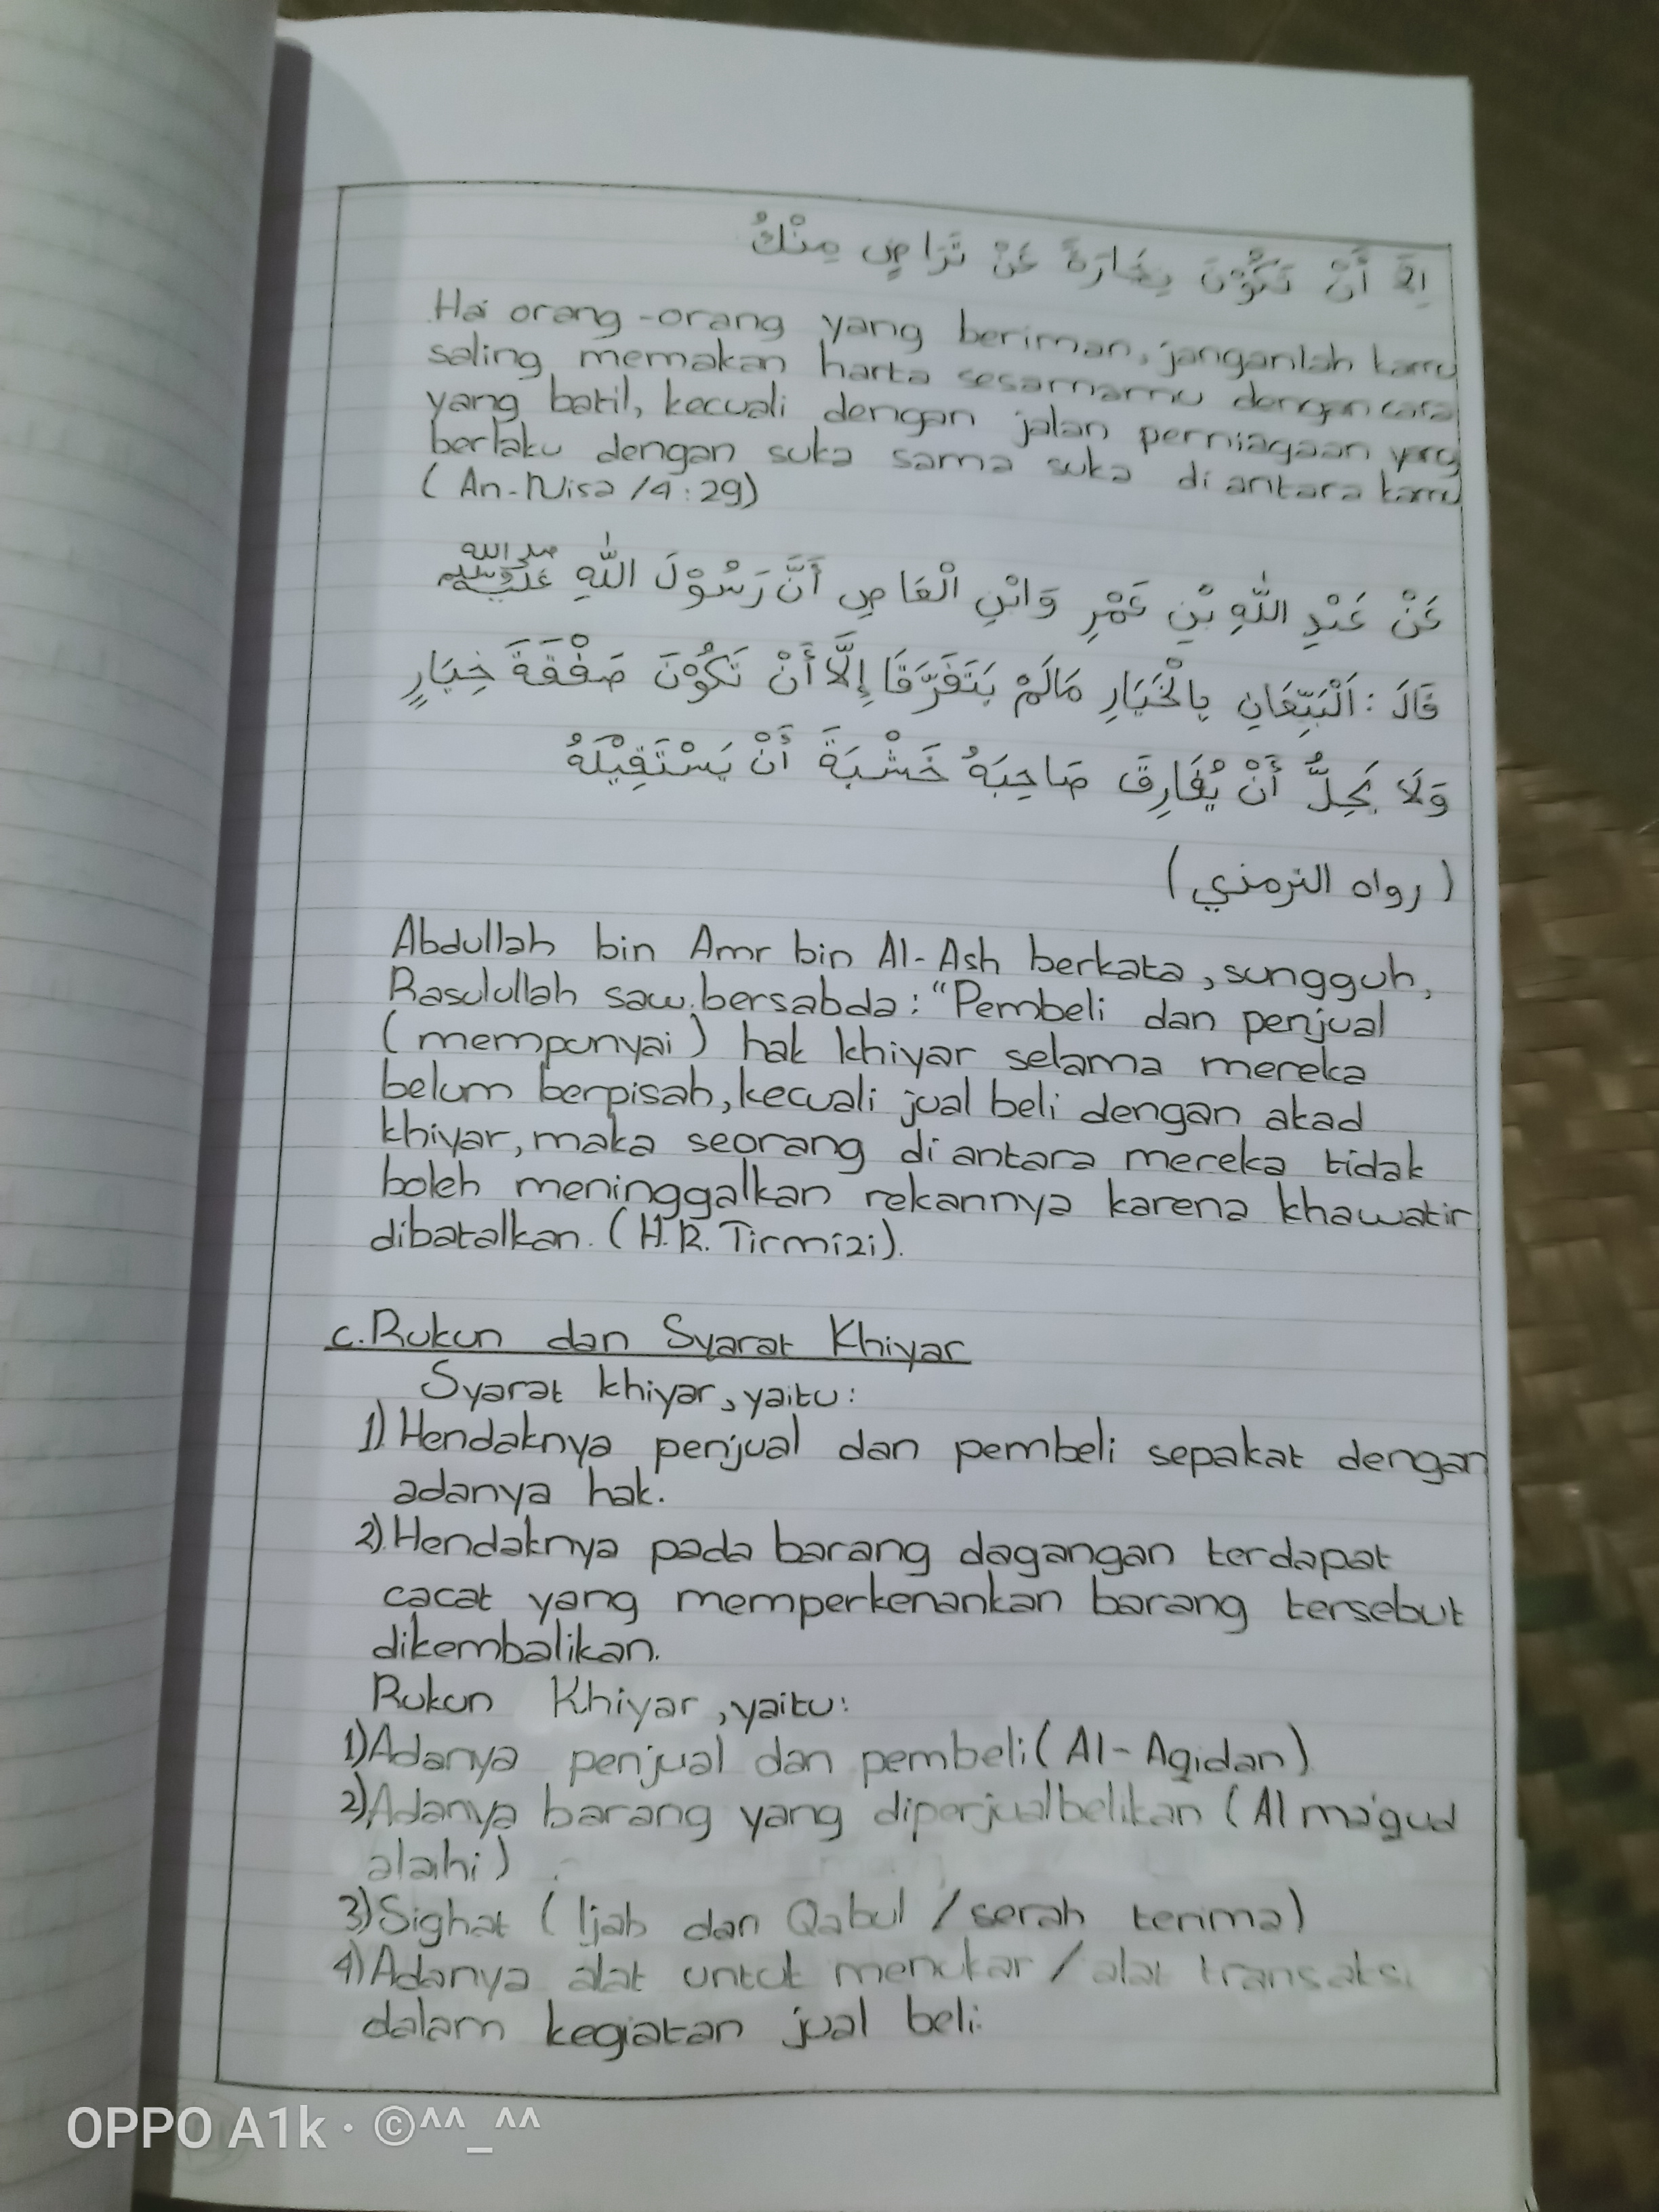 إِلَّا أَنْ تَكُوْنَ تِجَارَةً عَنْ تَرَاضٍ مِنْكُ
Hai orang-orang yang beriman, janganlah kamu
saling memakan harta sesamamu dengan cara
yang batil, kecuali dengan jalan perniagaan yang
berlaku dengan suka sama suka di antara kamu
(An-Nisa /4:29)
عَنْ عَبْدِ اللّٰهِ بْنِ عَمْرِ وَابْنِ الْعَاصِ أَنَّ رَسُوْلَ اللّٰهِ صلى الله عليه وسلم
قَالَ: اَلْبَيِّعَانِ بِالْخَيَارِ مَالَمْ يَتَفَرَّقَا إِلَّا أَنْ تَكُوْنَ صَفْقَةَ خِيَارٍ
وَلَا يَحِلُّ أَنْ يُفَارِقَ صَاحِبَهُ خَشْيَةَ أَنْ يَسْتَقِيْلَهُ
(رواه الترمذي)
Abdullah bin Amr bin Al-Ash berkata, sungguh,
Rasulullah saw. bersabda: "Pembeli dan penjual
(mempunyai) hak khiyar selama mereka
belum berpisah, kecuali jual beli dengan akad
khiyar, maka seorang di antara mereka tidak
boleh meninggalkan rekannya karena khawatir
dibatalkan. (H.R. Tirmizi).
c. Rukun dan Syarat Khiyar
Syarat khiyar, yaitu:
1) Hendaknya penjual dan pembeli sepakat dengan
adanya hak.
2) Hendaknya pada barang dagangan terdapat
cacat yang memperkenankan barang tersebut
dikembalikan.
Rukun Khiyar, yaitu:
1) Adanya penjual dan pembeli (Al-Aqidan)
2) Adanya barang yang diperjualbelikan (Al ma'qud
alaihi)
3) Sighat (Ijab dan Qabul / serah terima)
4) Adanya alat untuk menukar / alat transaksi
dalam kegiatan jual beli.
OPPO A1k · ©^^_^^